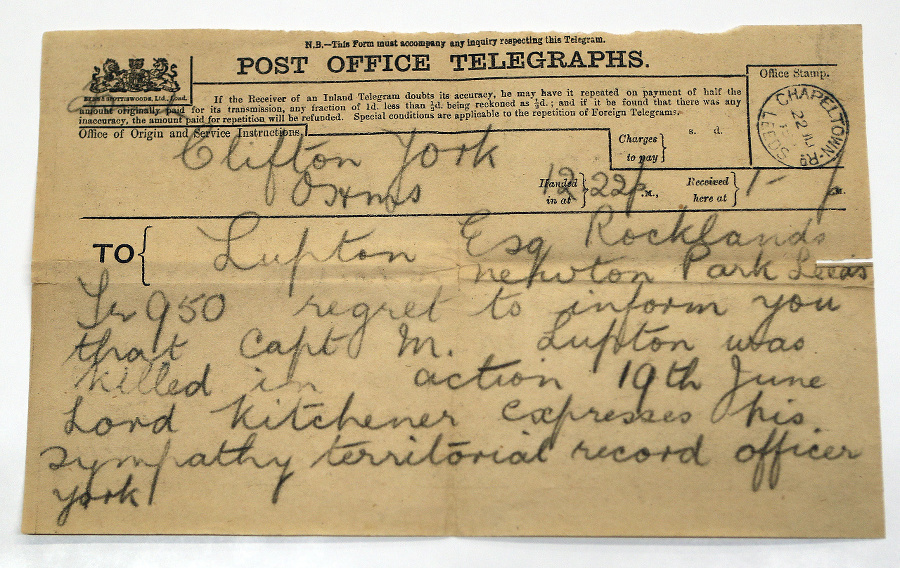 N.B.—This Form must accompany any inquiry respecting this Telegram.
POST OFFICE TELEGRAPHS.
If the Receiver of an Inland Telegram doubts its accuracy, he may have it repeated on payment of half the
amount originally paid for its transmission, any fraction of 1d. less than ½d. being reckoned as ½d.; and if it be found that there was any
inaccuracy, the amount paid for repetition will be refunded. Special conditions are applicable to the repetition of Foreign Telegrams.
Office Stamp.
CHAPELTOWN-RD
LEEDS
22 JU
Office of Origin and Service Instructions.
Charges to pay
s. d.
Clifton York
OHMS
Handed in at
12 22
M.,
Received here at
1-
M.
TO
Lupton Esq Rocklands
newton Park Leeds
950 regret to inform you
that Capt M. Lupton was
killed in action 19th June
Lord Kitchener expresses his
sympathy territorial record officer
york